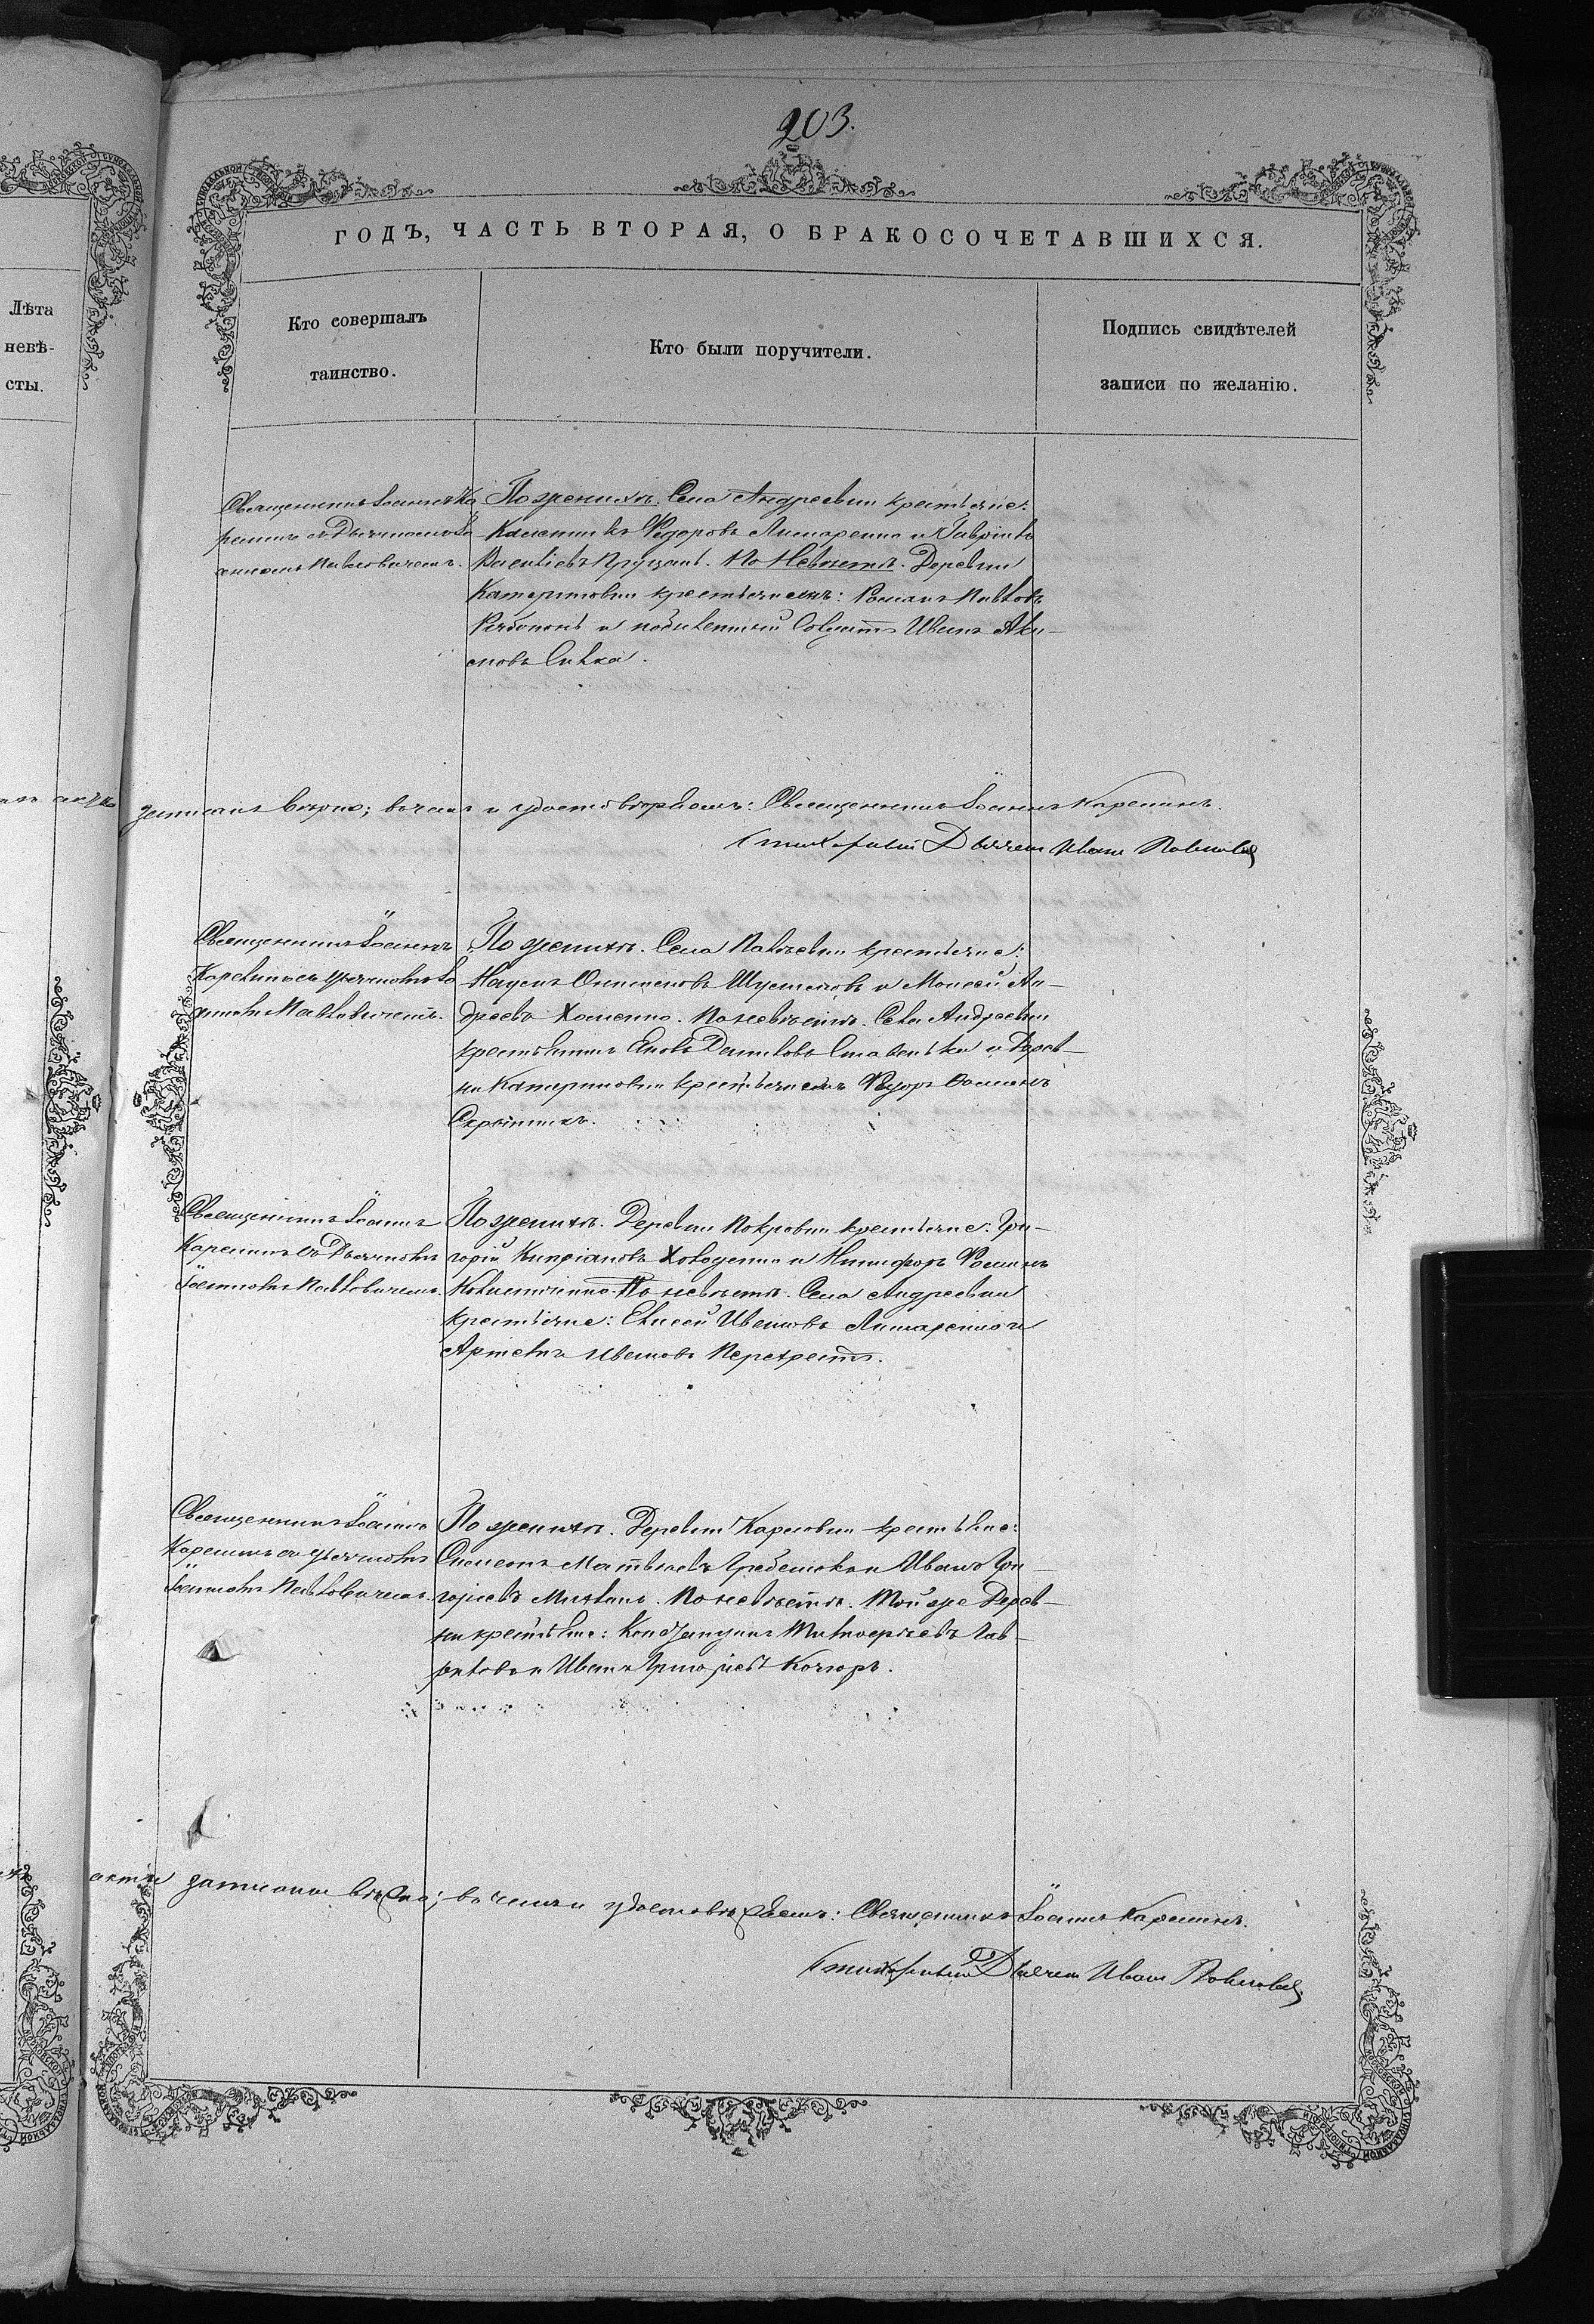 203.
ГОДЪ, ЧАСТЬ ВТОРАЯ, О БРАКОСОЧЕТАВШИХСЯ.
Лѣта
невѣ-
сты.
Кто совершалъ
таинство.
Кто были поручители.
Подпись свидѣтелей
записи по желанію.
Священникъ Іоаннъ Ка
релинъ съ Дьячкомъ Іо
анномъ Павловичемъ.
По женихѣ. Села Андреевки крестьяне:
Ѳедоровъ Литаренко и Гавріилъ
Васильевъ. По Невѣстѣ. Деревни
Катериновки крестьянинъ: Романъ Павловъ
и Солдатъ Иванъ Аки-
мовъ Силка.
записанъ вѣрно; въ чемъ и удостовѣряемъ: Священникъ Іоаннъ Карелинъ.
Стихарный Дьячекъ Иванъ Павловъ
Священникъ Іоаннъ
Карелинъ съ Дьячкомъ Іо
анномъ Павловичемъ.
По женихѣ. Села крестьяне:
Наумъ Шумейковъ и Моисей Ан-
дреевъ Хоменко. По невѣстѣ. Села Андреевки
крестьянинъ и Дерев-
ни Катериновки крестьянинъ Ѳедоръ Ѳоминъ
Скрыпникъ.
Священникъ Іоаннъ
Карелинъ съ Дьячкомъ
Іоанномъ Павловичемъ.
По женихѣ. Деревни Покровки крестьяне: Гри-
горій Кипріановъ Холоденко и Никифоръ Ѳоминъ
По невѣстѣ. Села Андреевки
крестьяне: Елисей Ивановъ Литаренко и
Артемъ Ивановъ Перехрестъ.
Священникъ Іоаннъ
Карелинъ съ Дьячкомъ
Іоанномъ Павловичемъ.
По женихѣ. Деревни Карловки крестьяне:
Симеонъ Матвѣевъ Гребенюкъ и Иванъ Гри-
горіевъ. По невѣстѣ. Той же Дерев-
ни крестьяне: Гав-
риловъ и Иванъ Григорьевъ Кочюръ.
акты записаны вѣрно; въ чемъ и удостовѣряемъ: Священникъ Іоаннъ Карелинъ.
Стихарный Дьячекъ Иванъ Павловъ.